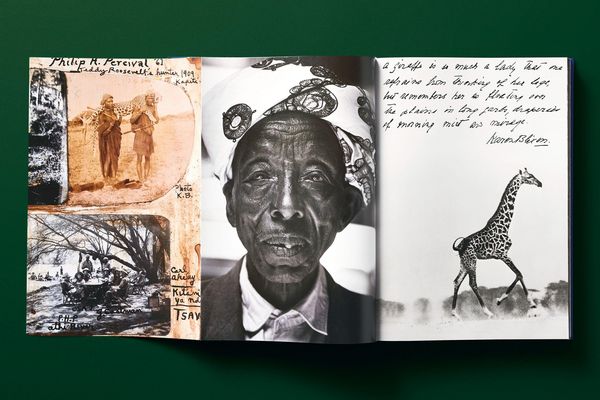 Philip H. Percival '61
Teddy Roosevelt's hunter 1909
Kapiti
Photo
K.B.
Carl
Akeley
Kitani
ya nd
TSAV
a giraffe is so much a lady that one
refrains from thinking of her legs,
but remembers her as floating over
the plains in long garbs, draperies
of morning mist or mirage.
Karen Blixen.